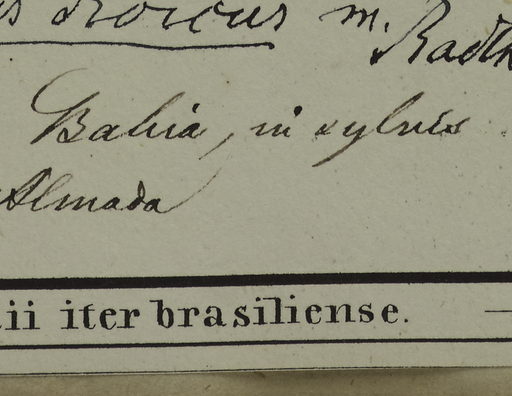 m. Radlk
Bahia, in sylvis
Almada
ii iter brasiliense. —